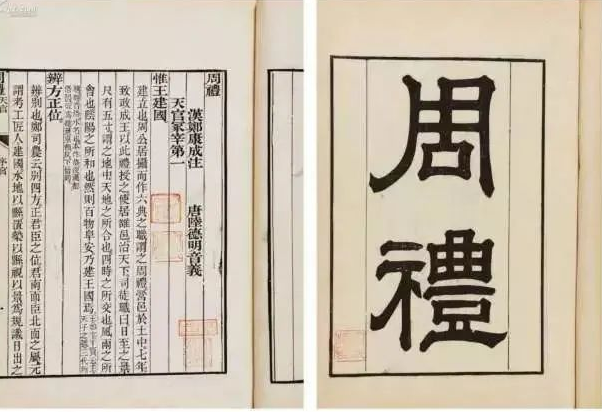 周禮
天官冢宰第一
漢鄭康成注
唐陸德明音義
惟王建國
建立也周公居攝而作六典之職謂之周禮營邑於土中七年
致政成王以此禮授之使居雒邑治天下司徒職曰日至之景
尺有五寸謂之地中天地之所合也四時之所交也風雨之所
會也陰陽之所和也然則百物阜安乃建王國焉
辨方正位
辨別也鄭司農云別四方正君臣之位君南面臣北面之屬元
謂考工匠人建國水地以縣置槷以縣視以景爲規識日出之
周禮
天官
序官
周禮